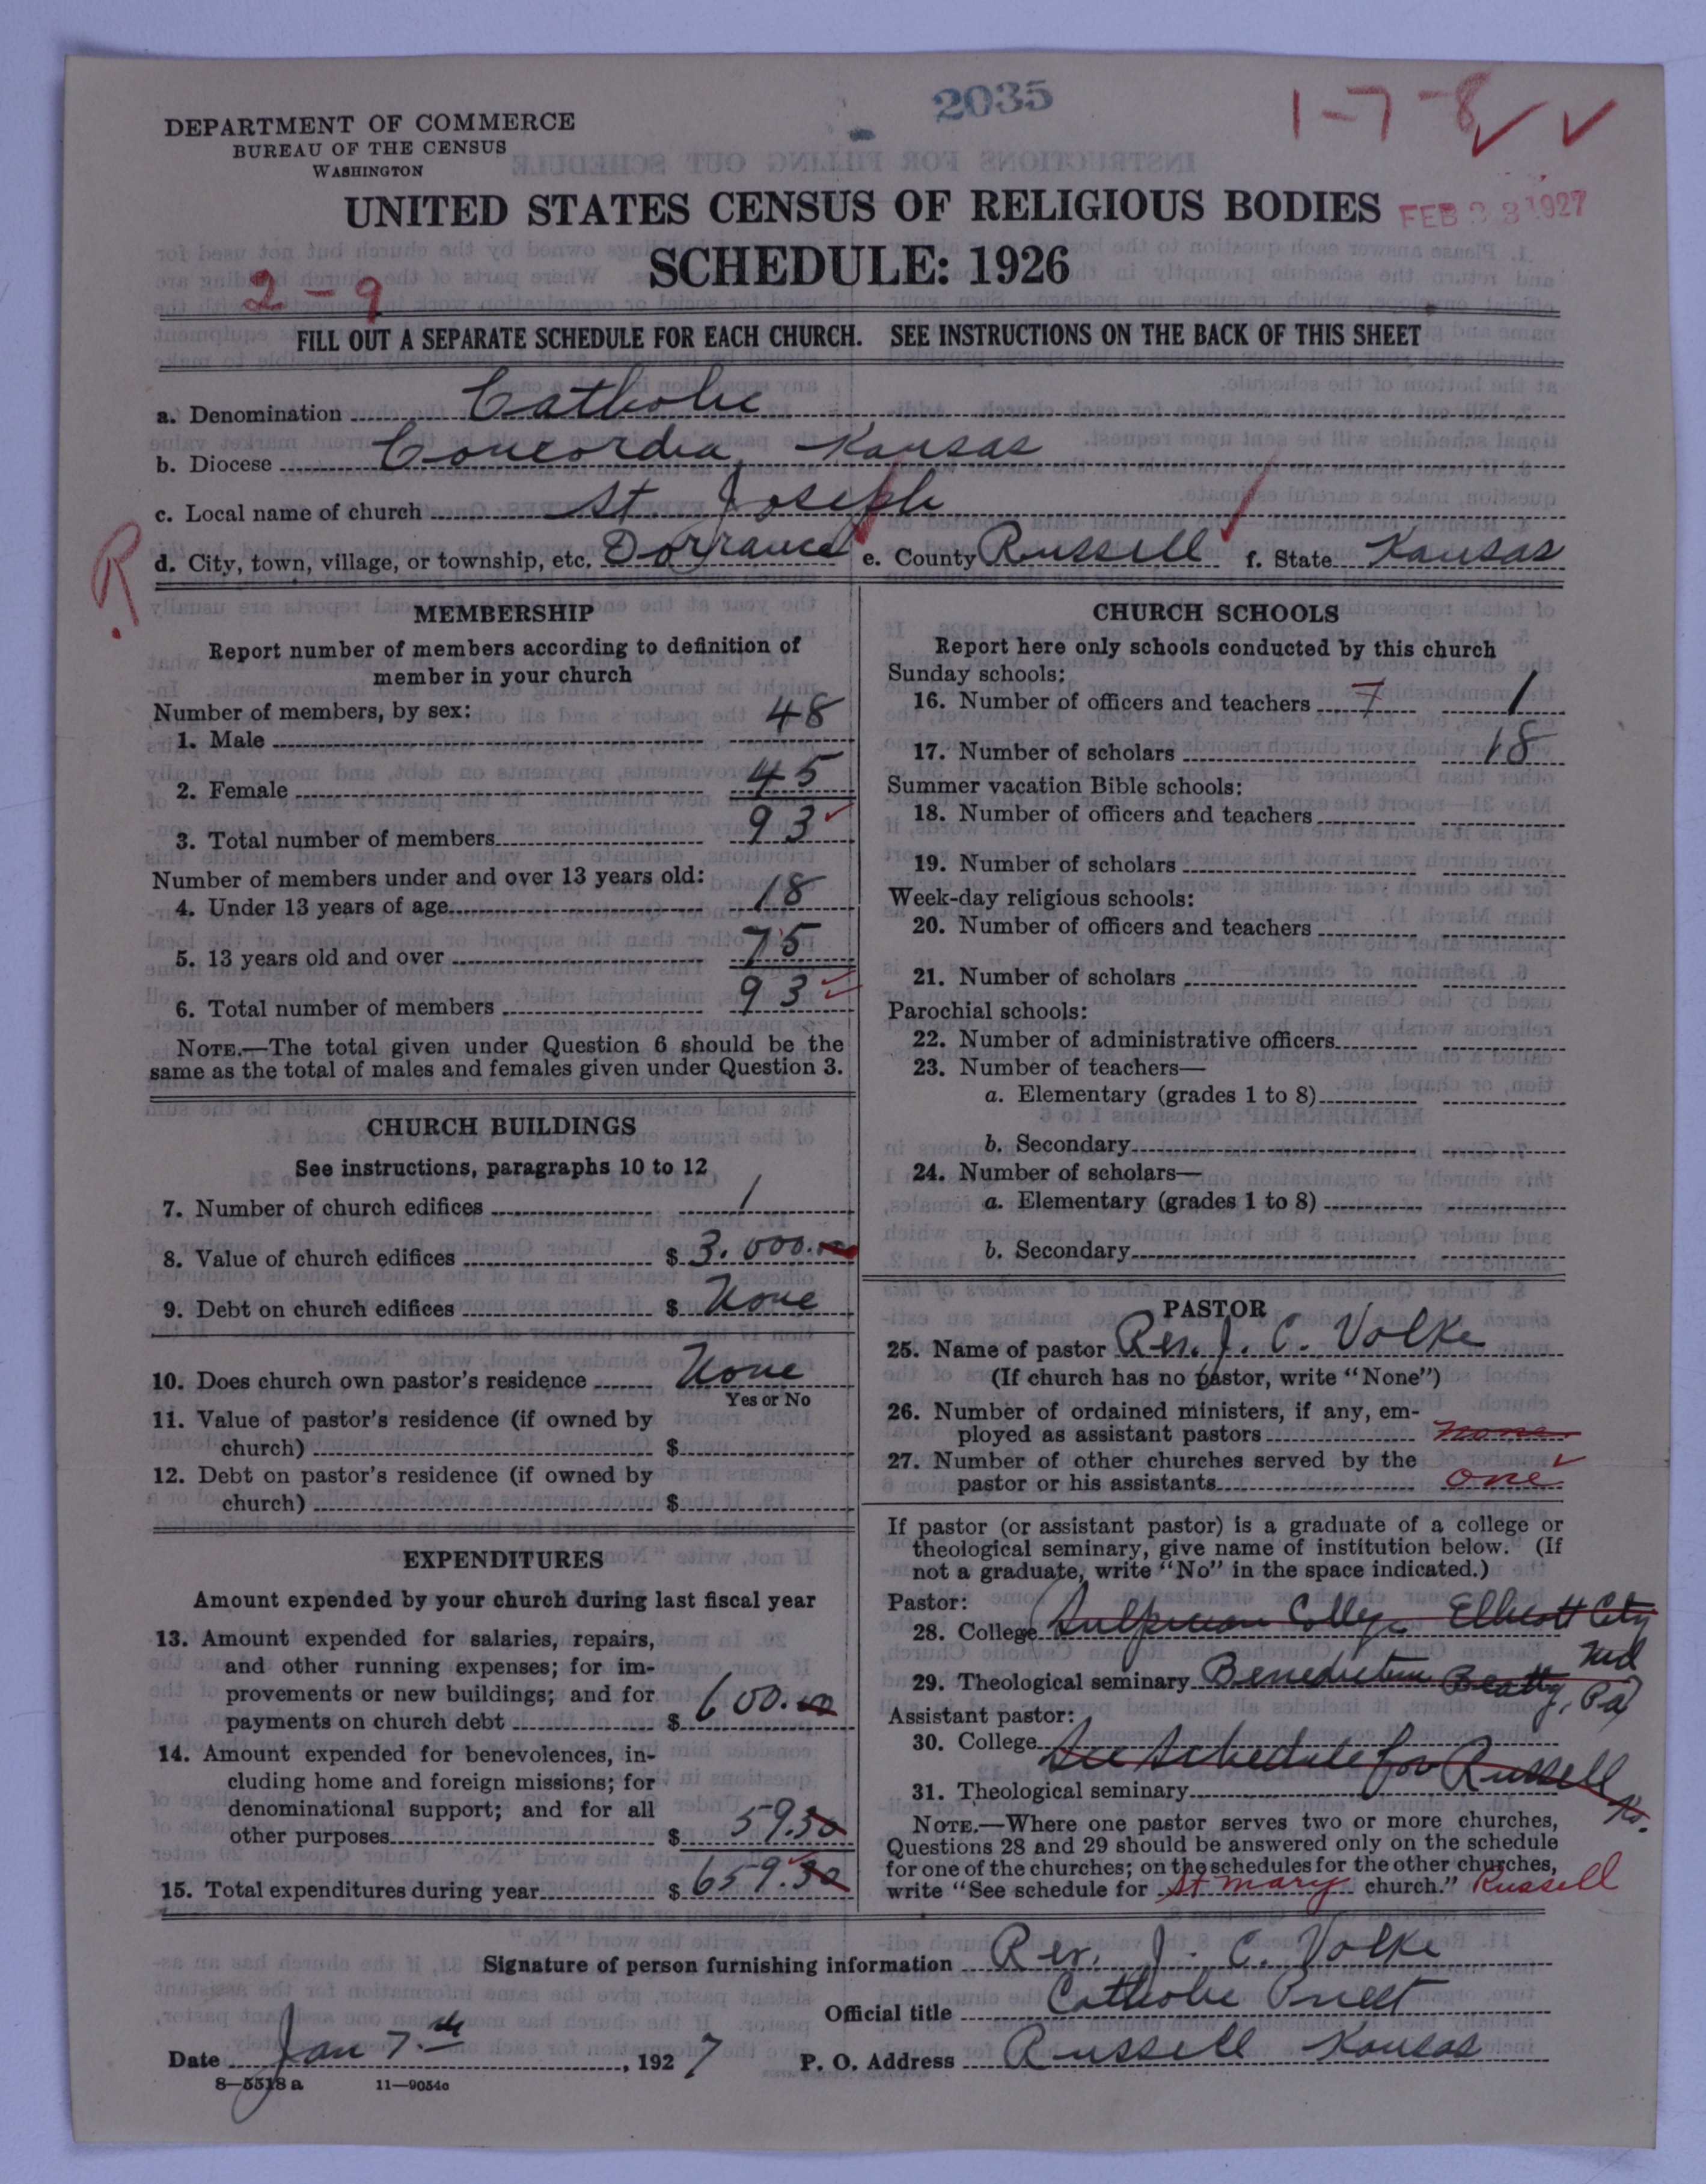 2035
1-7-8
DEPARTMENT OF COMMERCE
BUREAU OF THE CENSUS
WASHINGTON
UNITED STATES CENSUS OF RELIGIOUS BODIES
FEB 23 1927
SCHEDULE: 1926
2-9
FILL OUT A SEPARATE SCHEDULE FOR EACH CHURCH. SEE INSTRUCTIONS ON THE BACK OF THIS SHEET
a. Denomination Catholic
b. Diocese Concordia, Kansas
c. Local name of church St Joseph
R.
d. City, town, village, or township, etc. Dorrance e. County Russell f. State Kansas
MEMBERSHIP
Report number of members according to definition of
member in your church
Number of members, by sex:
1. Male 48
2. Female 45
3. Total number of members 93
Number of members under and over 13 years old:
4. Under 13 years of age 18
5. 13 years old and over 75
6. Total number of members 93
NOTE.—The total given under Question 6 should be the
same as the total of males and females given under Question 3.
CHURCH BUILDINGS
See instructions, paragraphs 10 to 12
7. Number of church edifices 1
8. Value of church edifices $ 3.000.00
9. Debt on church edifices $ None
10. Does church own pastor's residence None
Yes or No
11. Value of pastor's residence (if owned by
church) $
12. Debt on pastor's residence (if owned by
church) $
EXPENDITURES
Amount expended by your church during last fiscal year
13. Amount expended for salaries, repairs,
and other running expenses; for im-
provements or new buildings; and for
payments on church debt $ 600.00
14. Amount expended for benevolences, in-
cluding home and foreign missions; for
denominational support; and for all
other purposes $ 59.30
15. Total expenditures during year $ 659.30
CHURCH SCHOOLS
Report here only schools conducted by this church
Sunday schools:
16. Number of officers and teachers 7 1
17. Number of scholars 18
Summer vacation Bible schools:
18. Number of officers and teachers
19. Number of scholars
Week-day religious schools:
20. Number of officers and teachers
21. Number of scholars
Parochial schools:
22. Number of administrative officers
23. Number of teachers—
a. Elementary (grades 1 to 8)
b. Secondary
24. Number of scholars—
a. Elementary (grades 1 to 8)
b. Secondary
PASTOR
25. Name of pastor Rev. J. C. Volke
(If church has no pastor, write "None")
26. Number of ordained ministers, if any, em-
ployed as assistant pastors none
27. Number of other churches served by the
pastor or his assistants one
If pastor (or assistant pastor) is a graduate of a college or
theological seminary, give name of institution below. (If
not a graduate, write "No" in the space indicated.)
Pastor:
28. College Sulpician Colleg Ellicott City
Md
29. Theological seminary Benedictine Beatty, Pa
Assistant pastor:
30. College
See Schedule for Russell
Ks.
31. Theological seminary
NOTE.—Where one pastor serves two or more churches,
Questions 28 and 29 should be answered only on the schedule
for one of the churches; on the schedules for the other churches,
write "See schedule for St Mary church." Russell
Signature of person furnishing information Rev. J. C. Volke
Official title Catholic Priest
Date Jan 7.th, 1927 P. O. Address Russell Kansas
8—5518 a 11—9054c